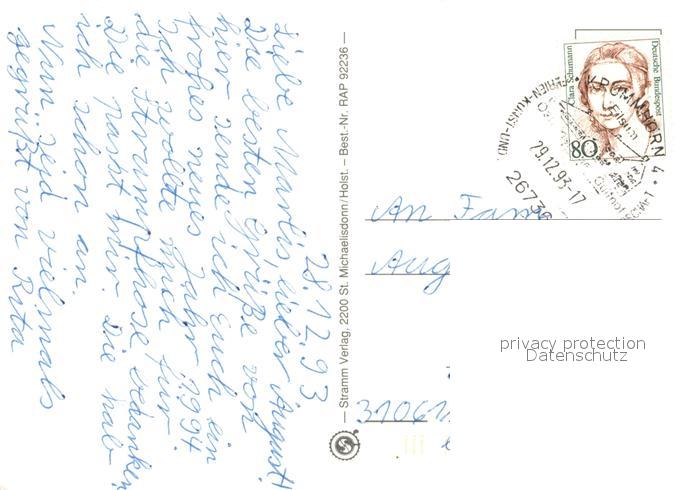 28.12.93
Liebe Marlis, lieber August!
Die besten Grüße von
hier sende ich Euch ein
frohes neues Jahr 1994.
Ich wollte mich für
die Strumpfhose bedanken
Die passt mir. Die hab
ich schon an.
Nun seid vielmals
gegrüßt von Rita
— Stramm Verlag, 2200 St. Michaelisdonn/Holst. – Best.-Nr. RAP 92236 —
Deutsche Bundespost
Clara Schumann
80
29.12.93-17
26736
An Fam
Aug
31061
privacy protection
Datenschutz